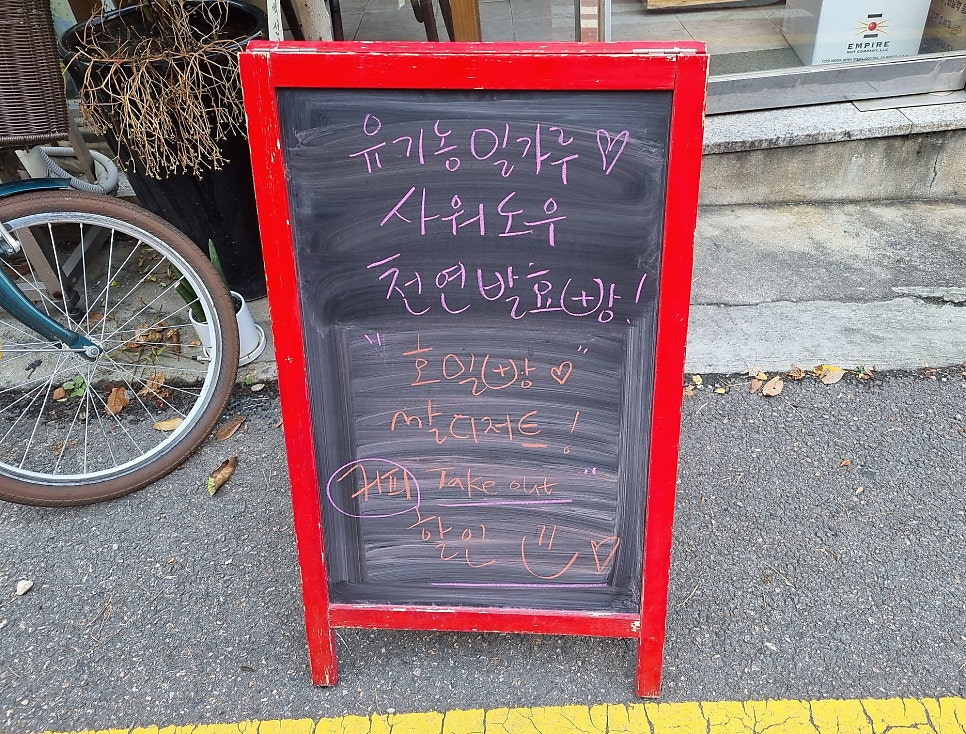 유기농 밀가루 ♡
사워도우
천연발효빵!
"호밀빵♡"
쌀디저트!
커피 Take out"
할인
EMPIRE
NUT COMPANY, LLC